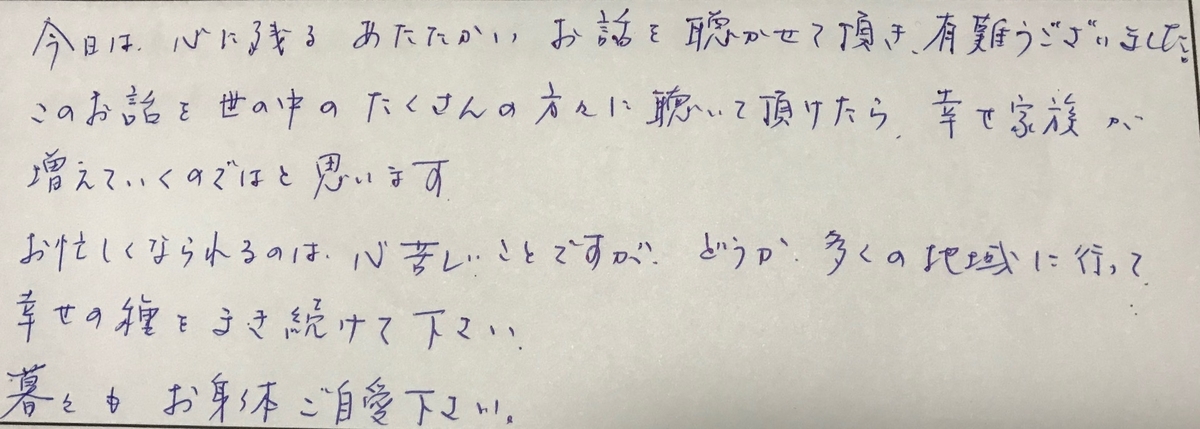 今日は、心に残る あたたかい お話を 聴かせて頂き、有難うございました。
このお話を 世の中の たくさんの 方々に 聴いて頂けたら、幸せ家族が
増えていくのではと 思います
お忙しくなられるのは、心苦しいことですが、どうか、多くの地域に行って
幸せの種をまき続けて下さい、
暮々も お身体ご自愛下さい。